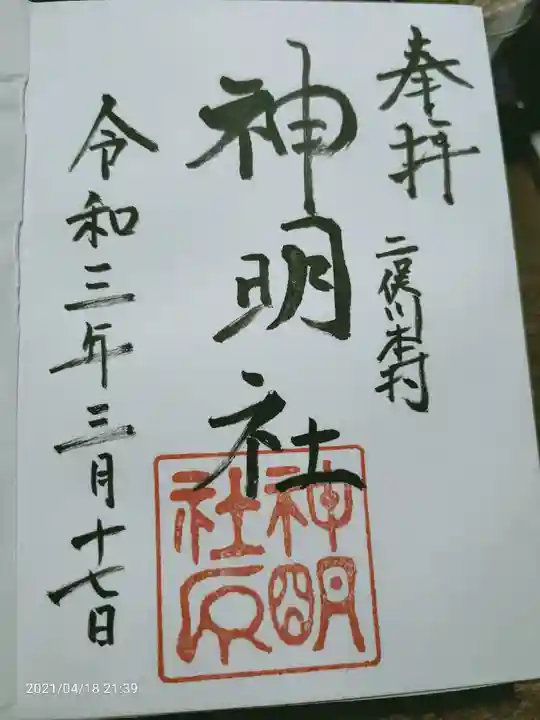 奉拝
二俣川本村
神明社
神明
社印
令和三年三月十七日
2021/04/18 21:39